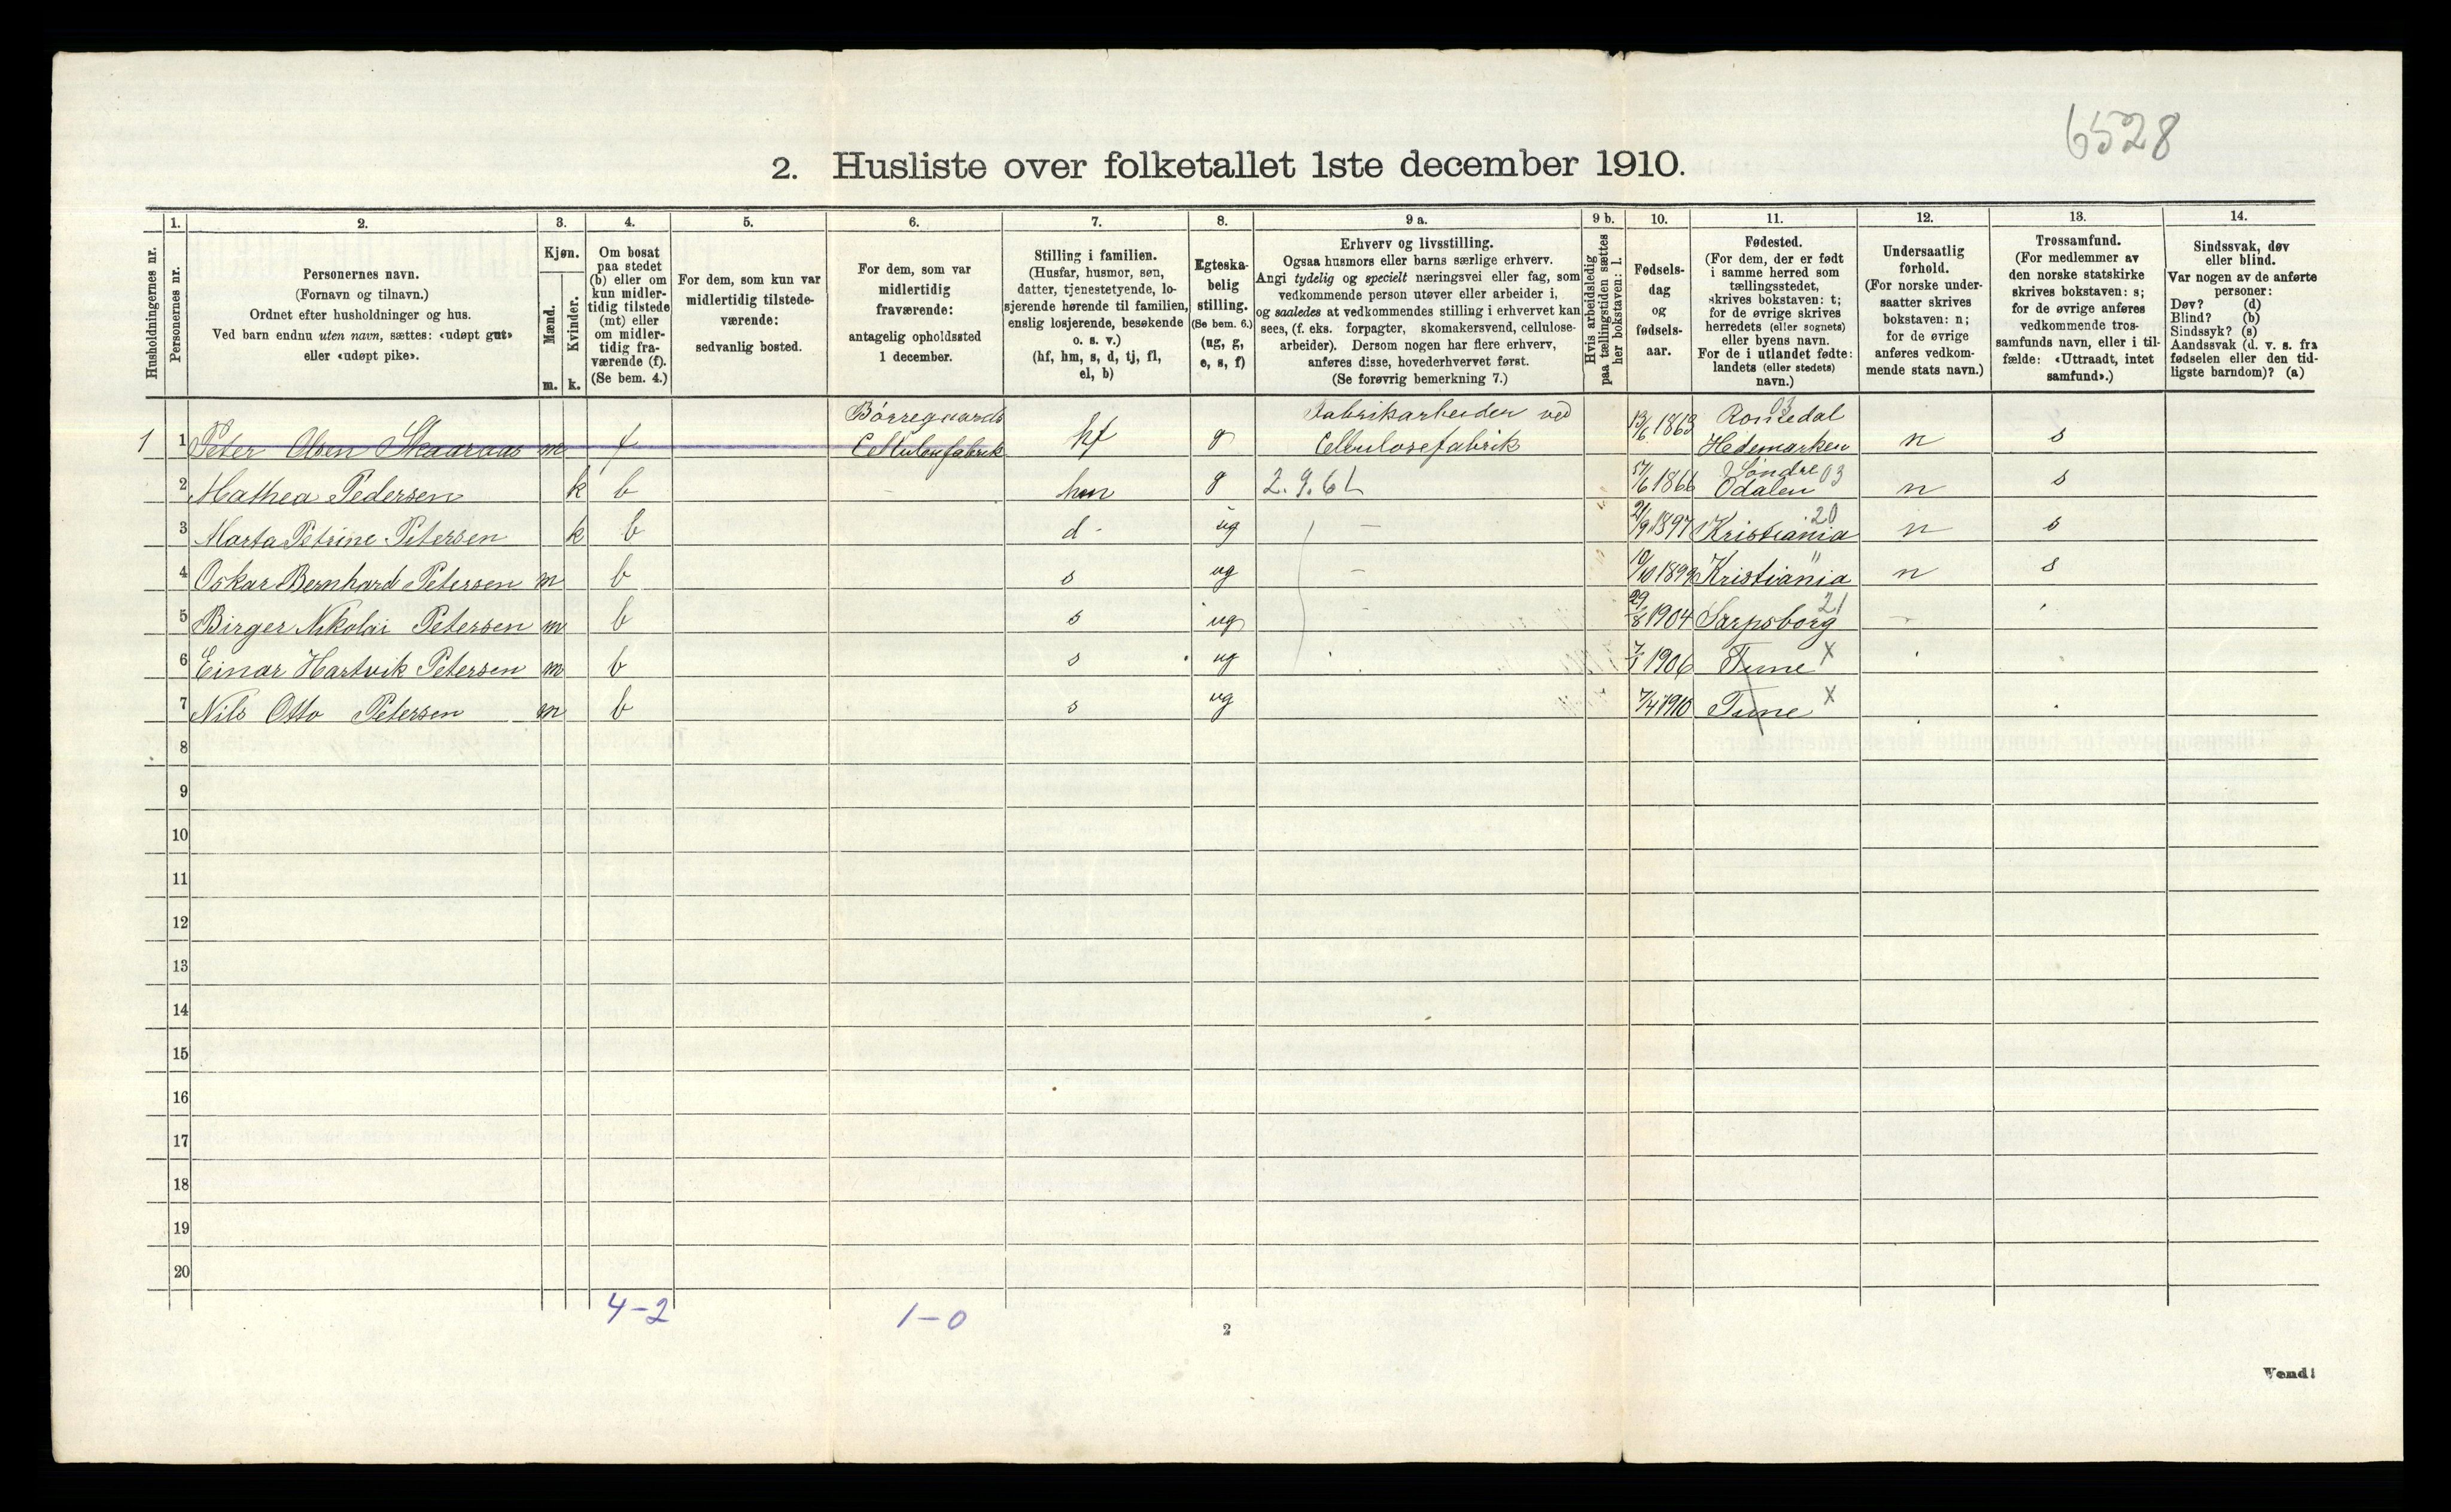 6528
2. Husliste over folketallet 1ste december 1910.
Husholdningernes nr.
1.
Personernes nr.
2.
Personernes navn.
(Fornavn og tilnavn.)
Ordnet efter husholdninger og hus.
Ved barn endnu uten navn, sættes: «udøpt gut»
eller «udøpt pike».
3.
Kjøn.
Mænd.
Kvinder.
m. k.
4.
Om bosat
paa stedet
(b) eller om
kun midler-
tidig tilstede
(mt) eller
om midler-
tidig fra-
værende (f).
(Se bem. 4.)
5.
For dem, som kun var
midlertidig tilstede-
værende:
sedvanlig bosted.
6.
For dem, som var
midlertidig
fraværende:
antagelig opholdssted
1 december.
7.
Stilling i familien.
(Husfar, husmor, søn,
datter, tjenestetyende, lo-
sjerende hørende til familien,
enslig losjerende, besøkende
o. s. v.)
(hf, hm, s, d, tj, fl,
el, b)
8.
Egteska-
belig
stilling.
(Se bem. 6.)
(ug, g,
e, s, f)
9 a.
Erhverv og livsstilling.
Ogsaa husmors eller barns særlige erhverv.
Angi tydelig og specielt næringsvei eller fag, som
vedkommende person utøver eller arbeider i,
og saaledes at vedkommendes stilling i erhvervet kan
sees, (f. eks. forpagter, skomakersvend, cellulose-
arbeider). Dersom nogen har flere erhverv,
anføres disse, hovederhvervet først.
(Se forøvrig bemerkning 7.)
9 b.
Hvis arbeidsledig
paa tællingstiden sættes
her bokstaven: l.
10.
Fødsels-
dag
og
fødsels-
aar.
11.
Fødested.
(For dem, der er født
i samme herred som
tællingsstedet,
skrives bokstaven: t;
for de øvrige skrives
herredets (eller sognets)
eller byens navn.
For de i utlandet fødte:
landets (eller stedets)
navn.)
12.
Undersaatlig
forhold.
(For norske under-
saatter skrives
bokstaven: n;
for de øvrige
anføres vedkom-
mende stats navn.)
13.
Trossamfund.
(For medlemmer av
den norske statskirke
skrives bokstaven: s;
for de øvrige anføres
vedkommende tros-
samfunds navn, eller i til-
fælde: «Uttraadt, intet
samfund».)
14.
Sindssvak, døv
eller blind.
Var nogen av de anførte
personer:
Døv? (d)
Blind? (b)
Sindssyk? (s)
Aandssvak (d. v. s. fra
fødselen eller den tid-
ligste barndom)? (a)
1 1 Peter Olsen Skaaraas m f Borregaards Cellulosefabrik hf g Fabrikarbeider ved Cellulosefabrik 13/6 1863 Romedal 03 Hedemarken n s
2 Mathea Pedersen k b hm g 2.9.6 L 17/6 1866 Söndre Odalen 03 n s
3 Marta Petrine Petersen k b d ug 21/9 1897 Kristiania 20 n s
4 Oskar Bernhard Petersen m b s ug 10/10 1899 Kristiania " n s
5 Birger Nikolai Petersen m b s ug 29/8 1904 Sarpsborg 21
6 Einar Hartvik Petersen m b s ug 7/1 1906 Tune x
7 Nils Otto Petersen m b s ug 7/4 1910 Tune x
8
9
10
11
12
13
14
15
16
17
18
19
20
4-2 1-0
2
Vend!